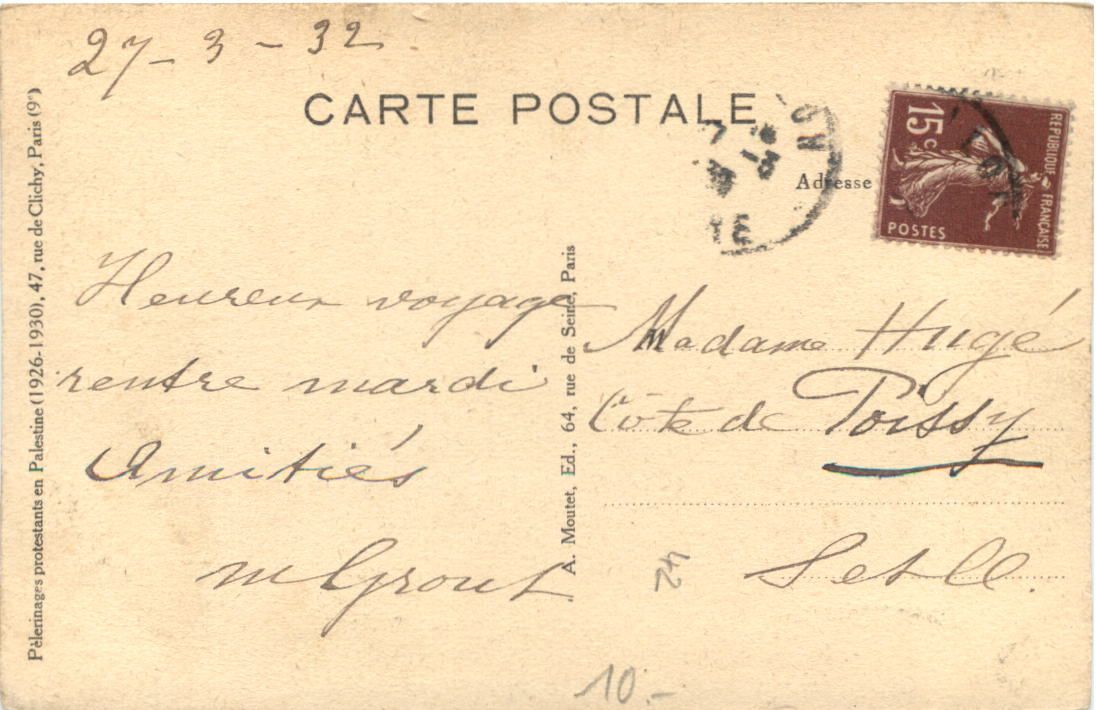 27 - 3 - 32
CARTE POSTALE
RÉPUBLIQUE FRANÇAISE
15c
POSTES
Adresse
Pèlerinages protestants en Palestine (1926-1930), 47, rue de Clichy, Paris (9e)
Heureux voyage
rentre mardi
Amitiés
A. Moutet, Ed., 64, rue de Seine, Paris
Madame Hugé
Côte de Poissy
S et O
24
10.-